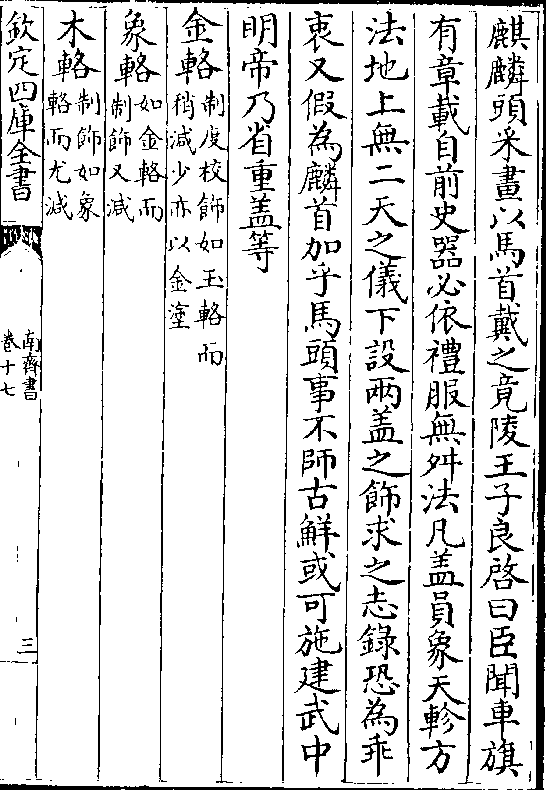 麒麟頭采畫以馬首戴之竟陵王子良啓曰臣聞車旗
有章載自前史器必依禮服無舛法凡盖員象天軫方
法地上無二天之儀下設兩盖之飾求之志錄恐為乖
衷又假為麟首加乎馬頭事不師古鮮或可施建武中
明帝乃省重盖等
金輅制度校飾如玉輅而
稍減少亦以金塗
象輅如金輅而
制飾又減
木輅制飾如象
輅而尤減
欽定四庫全書
南齊書
卷十七
三